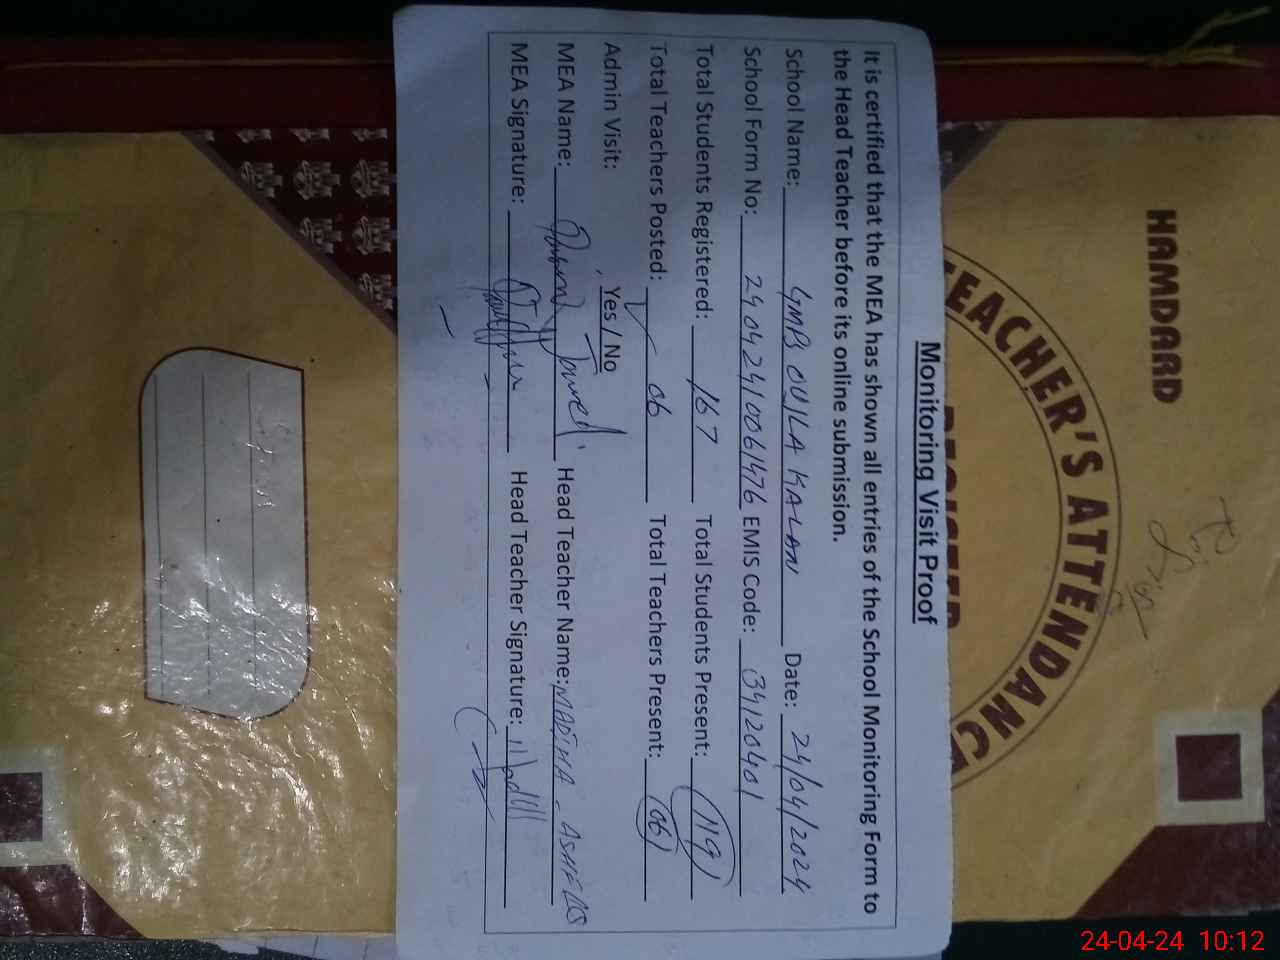 Monitoring Visit Proof
It is certified that the MEA has shown all entries of the School Monitoring Form to
the Head Teacher before its online submission.
School Name: GMPS OUJLA KALAN Date: 24/04/2024
School Form No: EMIS Code: 34120401
Total Students Registered: 167 Total Students Present: 119
Total Teachers Posted: 06 Total Teachers Present: 06
Admin Visit: Yes / No
MEA Name: Javed Head Teacher Name: MADIHA
MEA Signature: Head Teacher Signature:
HAMDARD
TEACHER'S ATTENDANCE
24-04-24 10:12